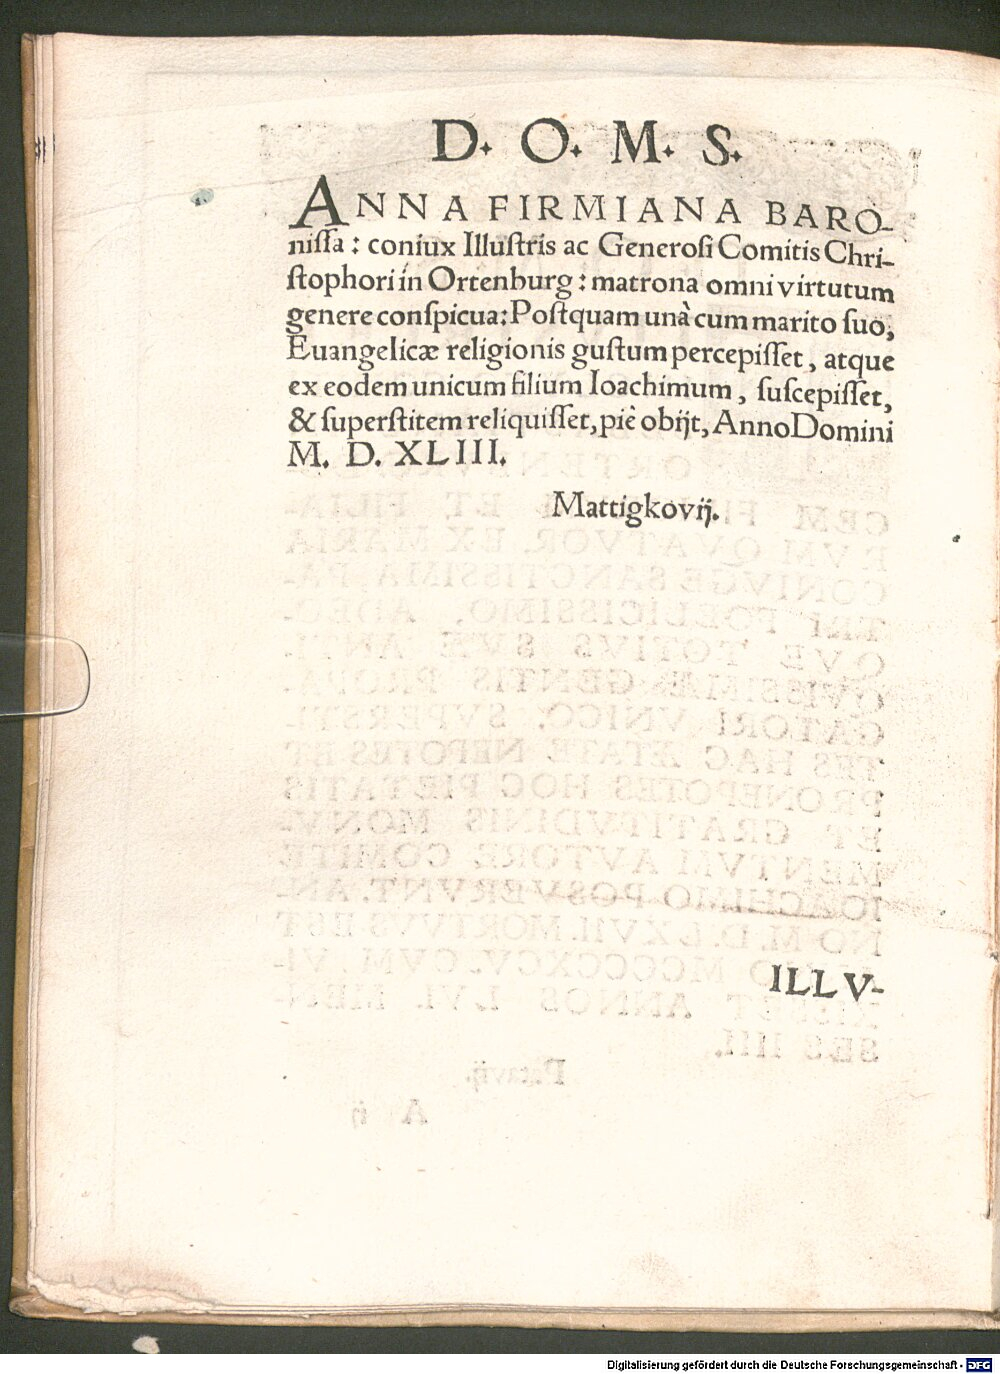 D. O. M. S.
ANNA FIRMIANA BARO-
niſſa: coniux Illuſtris ac Generoſi Comitis Chri-
ſtophori in Ortenburg: matrona omni virtutum
genere conſpicua: Poſtquam unà cum marito ſuo,
Euangelicæ religionis guſtum percepiſſet, atque
ex eodem unicum filium Ioachimum, ſuſcepiſſet,
& ſuperſtitem reliquiſſet, piè obijt, Anno Domini
M. D. XLIII.
Mattigkovij.
ILLV-
Digitalisierung gefördert durch die Deutsche Forschungsgemeinschaft - DFG